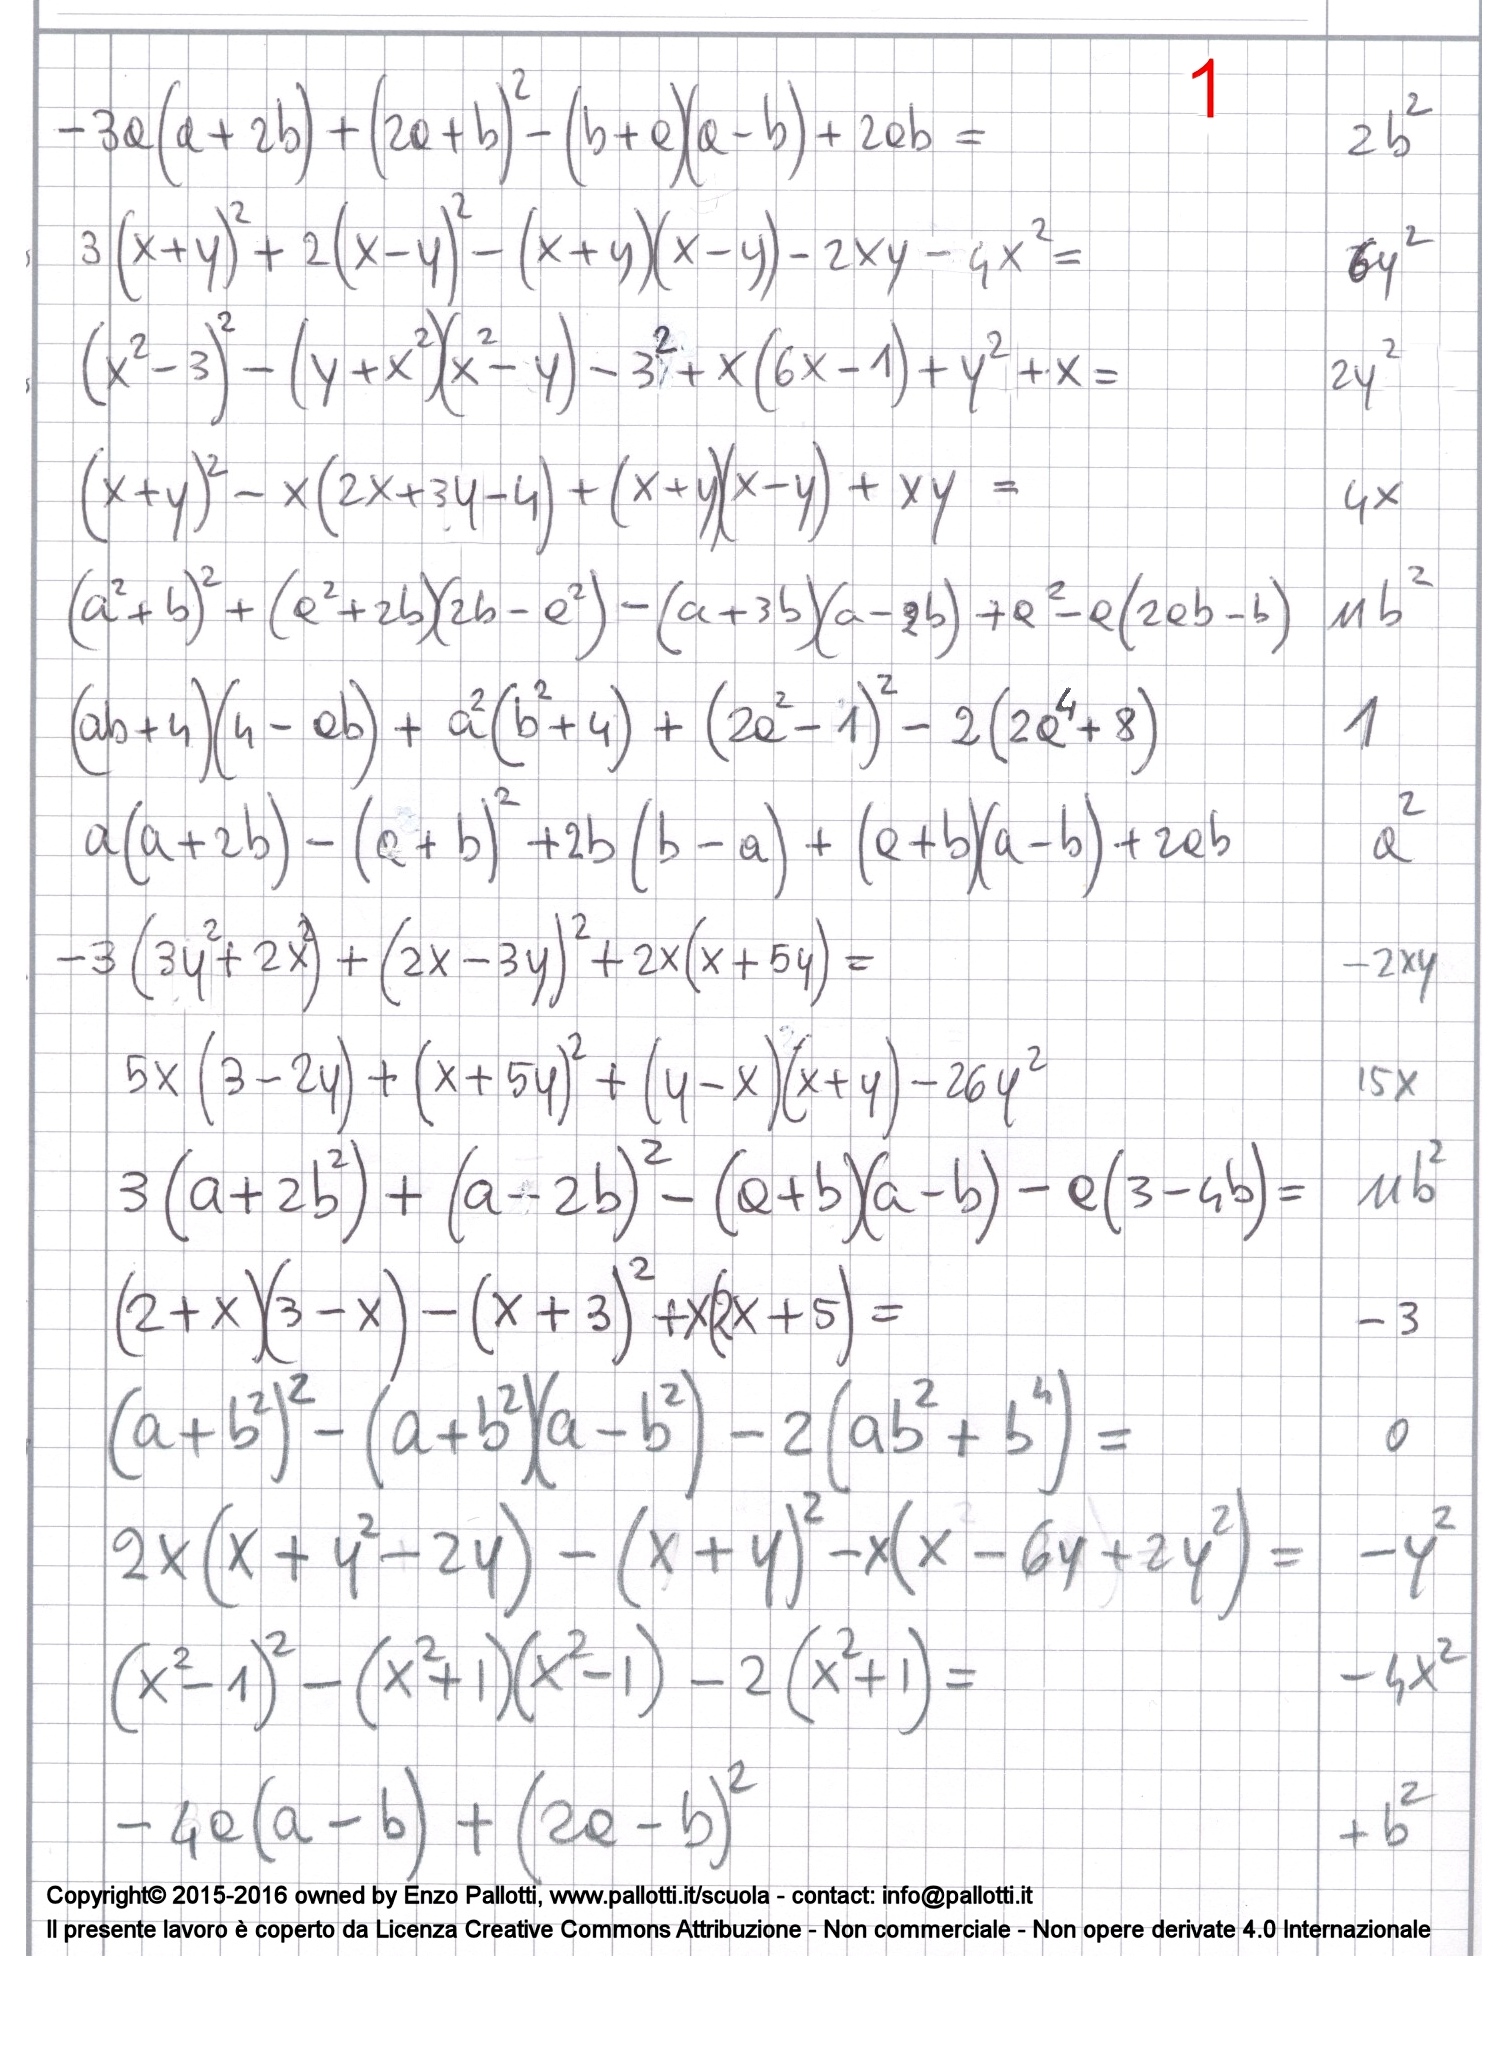 1
-3a(a+2b)+(2a+b)²-(b+a)(a-b)+2ab= 2b²
3(x+y)²+2(x-y)²-(x+y)(x-y)-2xy-4x²= 6y²
(x²-3)²-(y+x²)(x²-y)-3²+x(6x-1)+y²+x= 2y²
(x+y)²-x(2x+3y-4)+(x+y)(x-y)+xy= 4x
(a²+b)²+(a²+2b)(2b-a²)-(a+3b)(a-2b)+a²-a(2ab-b) 11b²
(ab+4)(4-ab)+a²(b²+4)+(2a²-1)²-2(2a⁴+8) 1
a(a+2b)-(a+b)²+2b(b-a)+(a+b)(a-b)+2ab a²
-3(3y²+2x²)+(2x-3y)²+2x(x+5y)= -2xy
5x(3-2y)+(x+5y)²+(y-x)(x+y)-26y² 15x
3(a+2b²)+(a-2b)²-(a+b)(a-b)-a(3-4b)= 11b²
(2+x)(3-x)-(x+3)²+x(2x+5)= -3
(a+b²)²-(a+b²)(a-b²)-2(ab²+b⁴)= 0
2x(x+y²-2y)-(x+y)²-x(x-6y+2y²)= -y²
(x²-1)²-(x²+1)(x²-1)-2(x²+1)= -4x²
-4a(a-b)+(2a-b)² +b²
Copyright© 2015-2016 owned by Enzo Pallotti, www.pallotti.it/scuola - contact: info@pallotti.it
Il presente lavoro è coperto da Licenza Creative Commons Attribuzione - Non commerciale - Non opere derivate 4.0 Internazionale